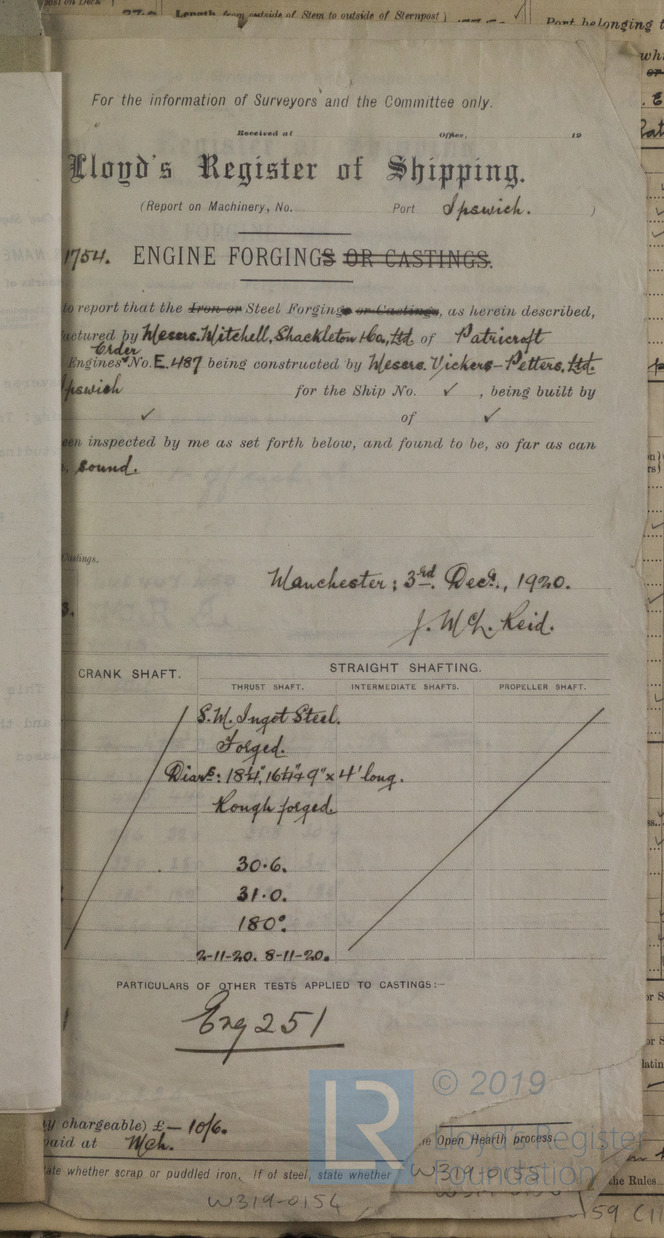 Length from outside of Stem to outside of Sternpost
Port belonging t
For the information of Surveyors and the Committee only.
Received at Office, 19
Lloyd's Register of Shipping.
(Report on Machinery, No. Port Ipswich. )
1754. ENGINE FORGINGS OR CASTINGS.
to report that the Iron or Steel Forgings or Castings, as herein described,
actured by Messrs. Mitchell, Shackleton & Co, Ltd of Patricroft
Order
Engines No. E.487 being constructed by Messrs. Vickers-Petters, Ltd.
Ipswich for the Ship No. ✓ , being built by
✓ of ✓
een inspected by me as set forth below, and found to be, so far as can
, sound.
Castings.
Manchester; 3rd. Decr., 1920.
J. McL. Reid.
CRANK SHAFT. STRAIGHT SHAFTING.
THRUST SHAFT. INTERMEDIATE SHAFTS. PROPELLER SHAFT.
S.M. Ingot Steel.
Forged.
Diars: 18¼", 16¼" & 9" x 4' long.
Rough forged.
30.6.
31.0.
180°.
2-11-20. 8-11-20.
PARTICULARS OF OTHER TESTS APPLIED TO CASTINGS:—
Eng 251
y chargeable) £— 10/6.
paid at Mch.
e Open Hearth process
ate whether scrap or puddled iron. If of steel, state whether
the Rules
W319-0154
W319-0155
59 (11
© 2019
LR
Lloyd's Register
Foundation